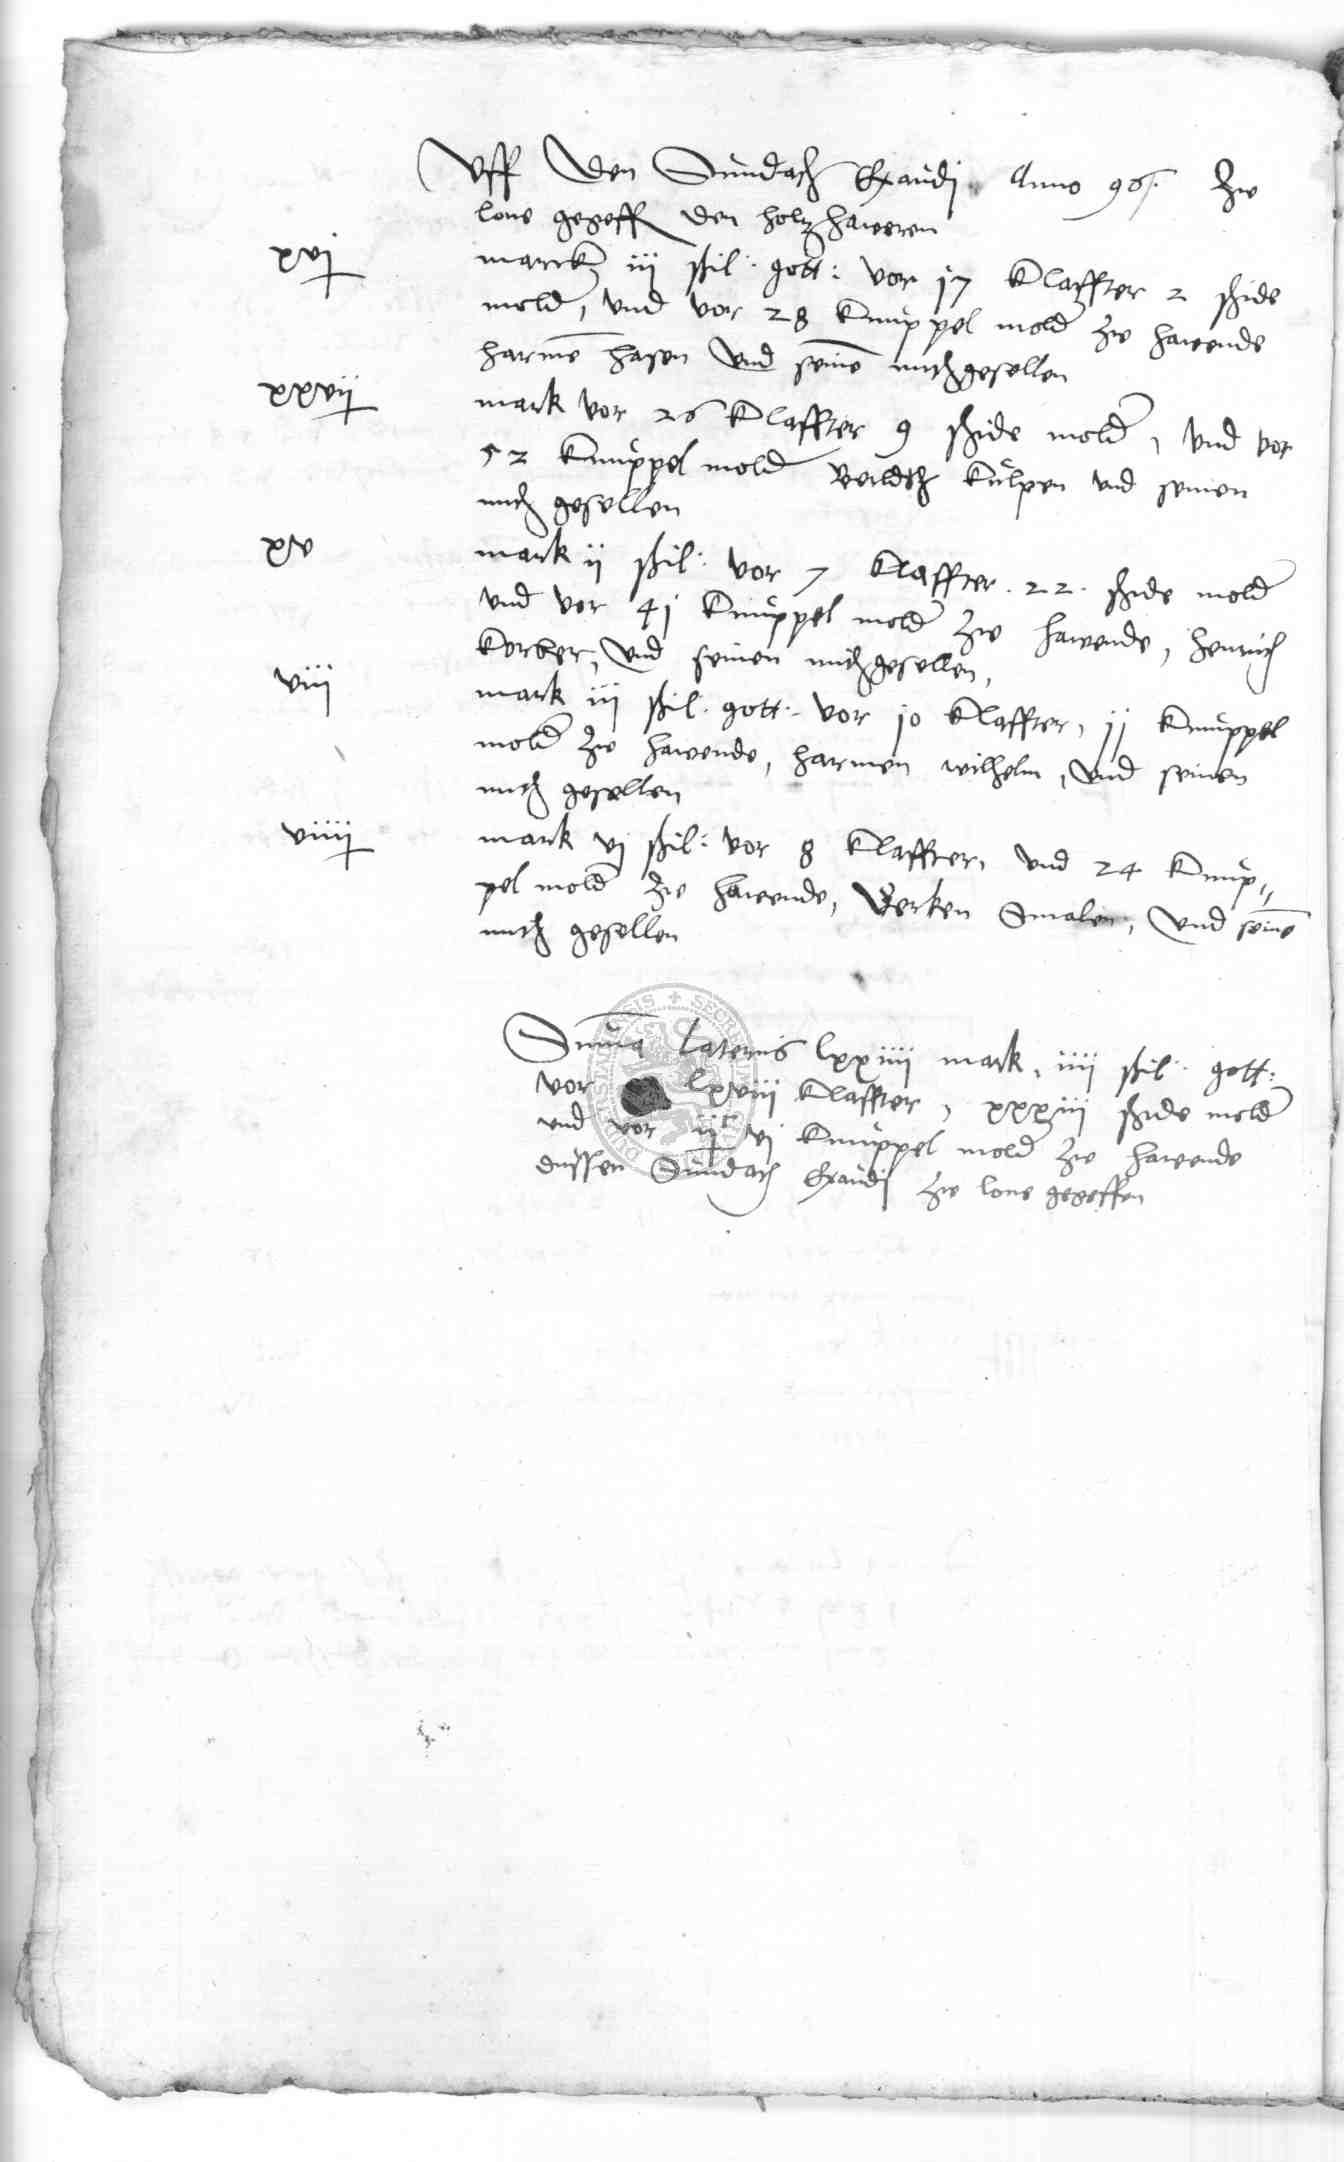 Uff den Sundach Exaudj Anno 96. Zw
lone gegeffen den holtzhaweren
xvj marck iij schil: gott: vor 17 Klaffter 2 schide
molder, und vor 28 knuppel molder zw hawende
harmen hasen und seinen mithgesellen
xxvij mark vor 26 Klaffter 9 schide molder, und vor
52 knuppel molder Kulpen und seinen
mith gesellen
xv mark ij schil: vor 7 Klaffter 22 schide molder
und vor 41 knuppel molder zw hawende, henrich
korber, und seinen mithgesellen,
viij mark iij schil. gott: vor 10 Klaffter, 11 knuppel
molder zw hawende, harmen wilhelm, und seinen
mith gesellen
viiij mark vj schil: vor 8 Klaffter, und 24 knup„
pel molder zw hawende, Smalen, und seinen
mith gesellen
Summa lateris lxxiiij mark, iiij schil. gott:
vor lxviij Klaffter, xxxiij schide molder
und vor vj knuppel molder zw hawende
dussen Sundach Exaudj zw lone gegeffen